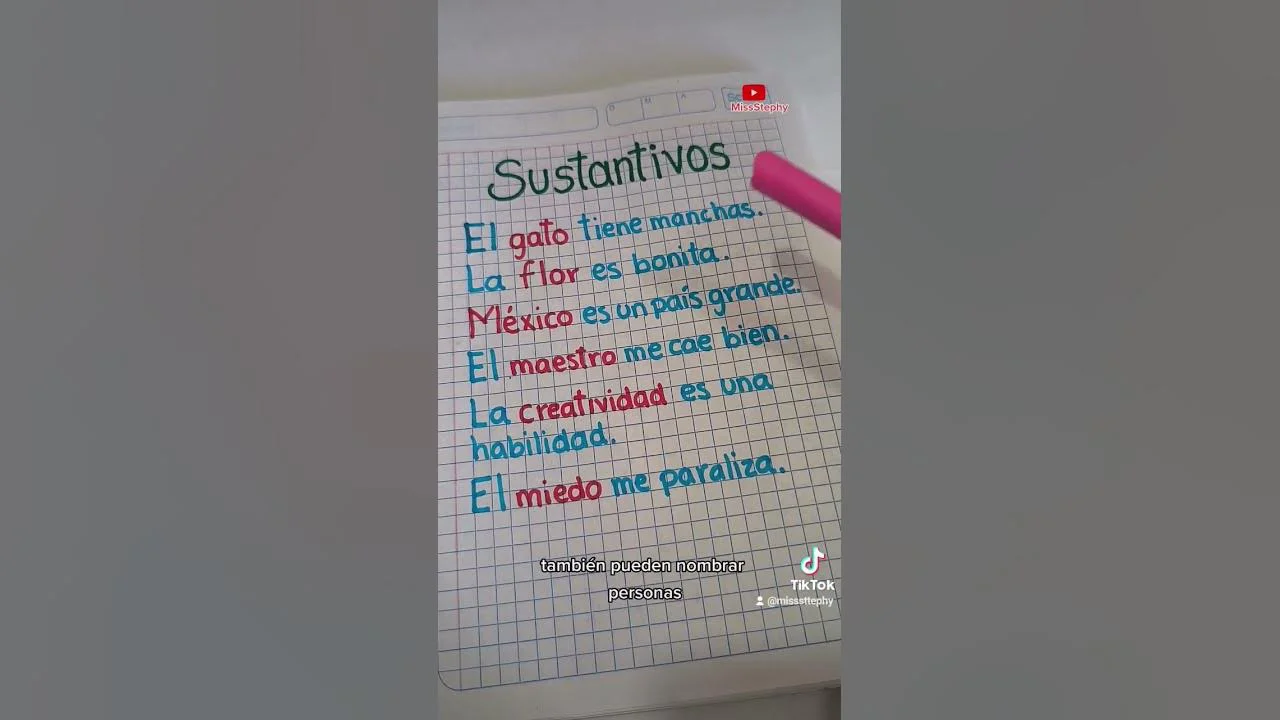 D M A
MissStephy
Sustantivos
El gato tiene manchas.
La flor es bonita.
México es un país grande.
El maestro me cae bien.
La creatividad es una
habilidad.
El miedo me paraliza.
también pueden nombrar
personas
TikTok
@misssttephy